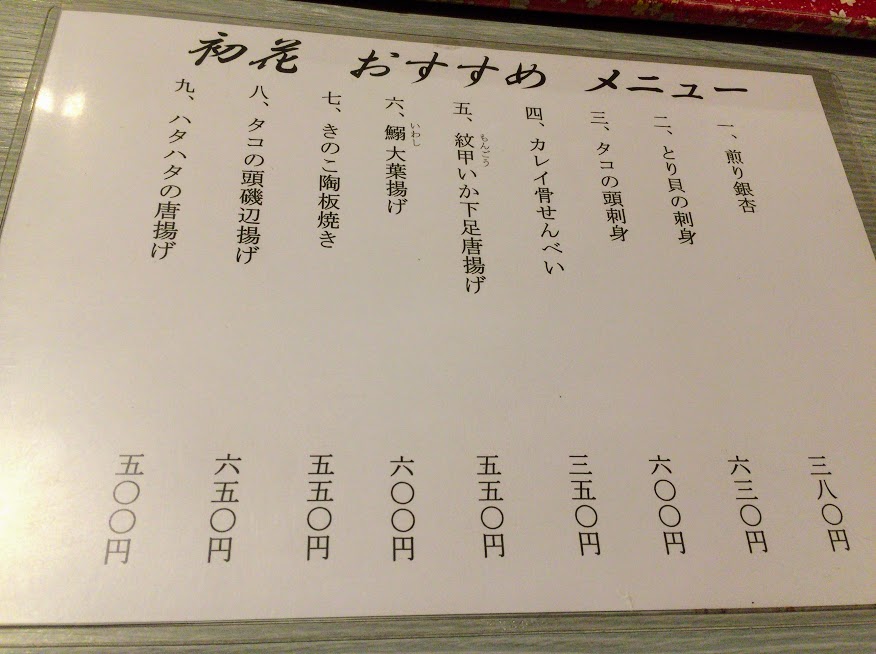 初花 おすすめ メニュー
一、煎り銀杏 三八〇円
二、とり貝の刺身 六三〇円
三、タコの頭刺身 六〇〇円
四、カレイ骨せんべい 三五〇円
もんごう
五、紋甲いか下足唐揚げ 五五〇円
いわし
六、鰯大葉揚げ 六〇〇円
七、きのこ陶板焼き 五五〇円
八、タコの頭磯辺揚げ 六五〇円
九、ハタハタの唐揚げ 五〇〇円